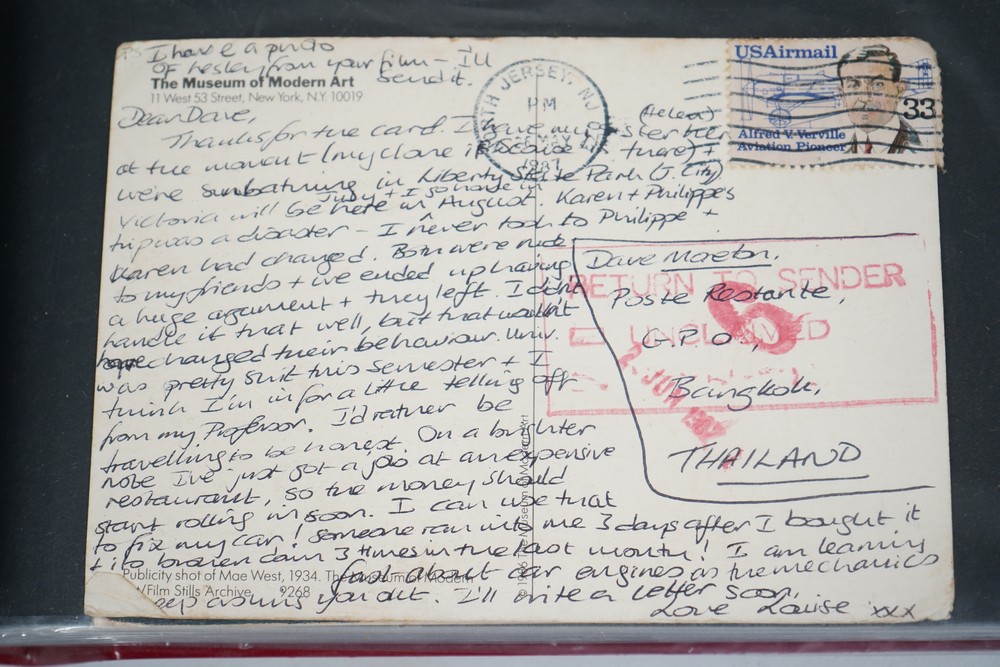 PS I have a photo
of Lesley from your film - I'll
send it.
The Museum of Modern Art
11 West 53 Street, New York, N.Y. 10019
Dear Dave,
Thanks for the card. I have my sister here (Helen)
at the moment (my clone if score is there) +
we're sunbathing in Liberty State Park (J. City)
Judy + I so home in
Victoria will be here in August. Karen + Philippes
trip was a disaster - I never took to Philippe +
Karen had changed. Both were rude
to my friends + we ended up having
a huge argument + they left. I didn't
handle it that well, but that wouldn't
have changed their behaviour. Univ.
was pretty shit this semester + I
think I'm in for a little telling off
from my Professor. I'd rather be
travelling to be honest. On a brighter
note I've just got a job at an expensive
restaurant, so the money should
start rolling in soon. I can use that
to fix my car! Someone ran into me 3 days after I bought it
+ its broken down 3 times in the last month! I am learning
fast about car engines as the mechanics
keep asking you out. I'll write a letter soon,
Love Louise xxx
Publicity shot of Mae West, 1934. The Museum of Modern
Art/Film Stills Archive. 9268
© 1986 The Museum of Modern Art
NORTH JERSEY, NJ
PM
1987
USAirmail
33
Alfred V. Verville
Aviation Pioneer
Dave Moreton,
Poste Restante,
G.P.O.,
Bangkok,
THAILAND
RETURN TO SENDER
UNCLAIMED